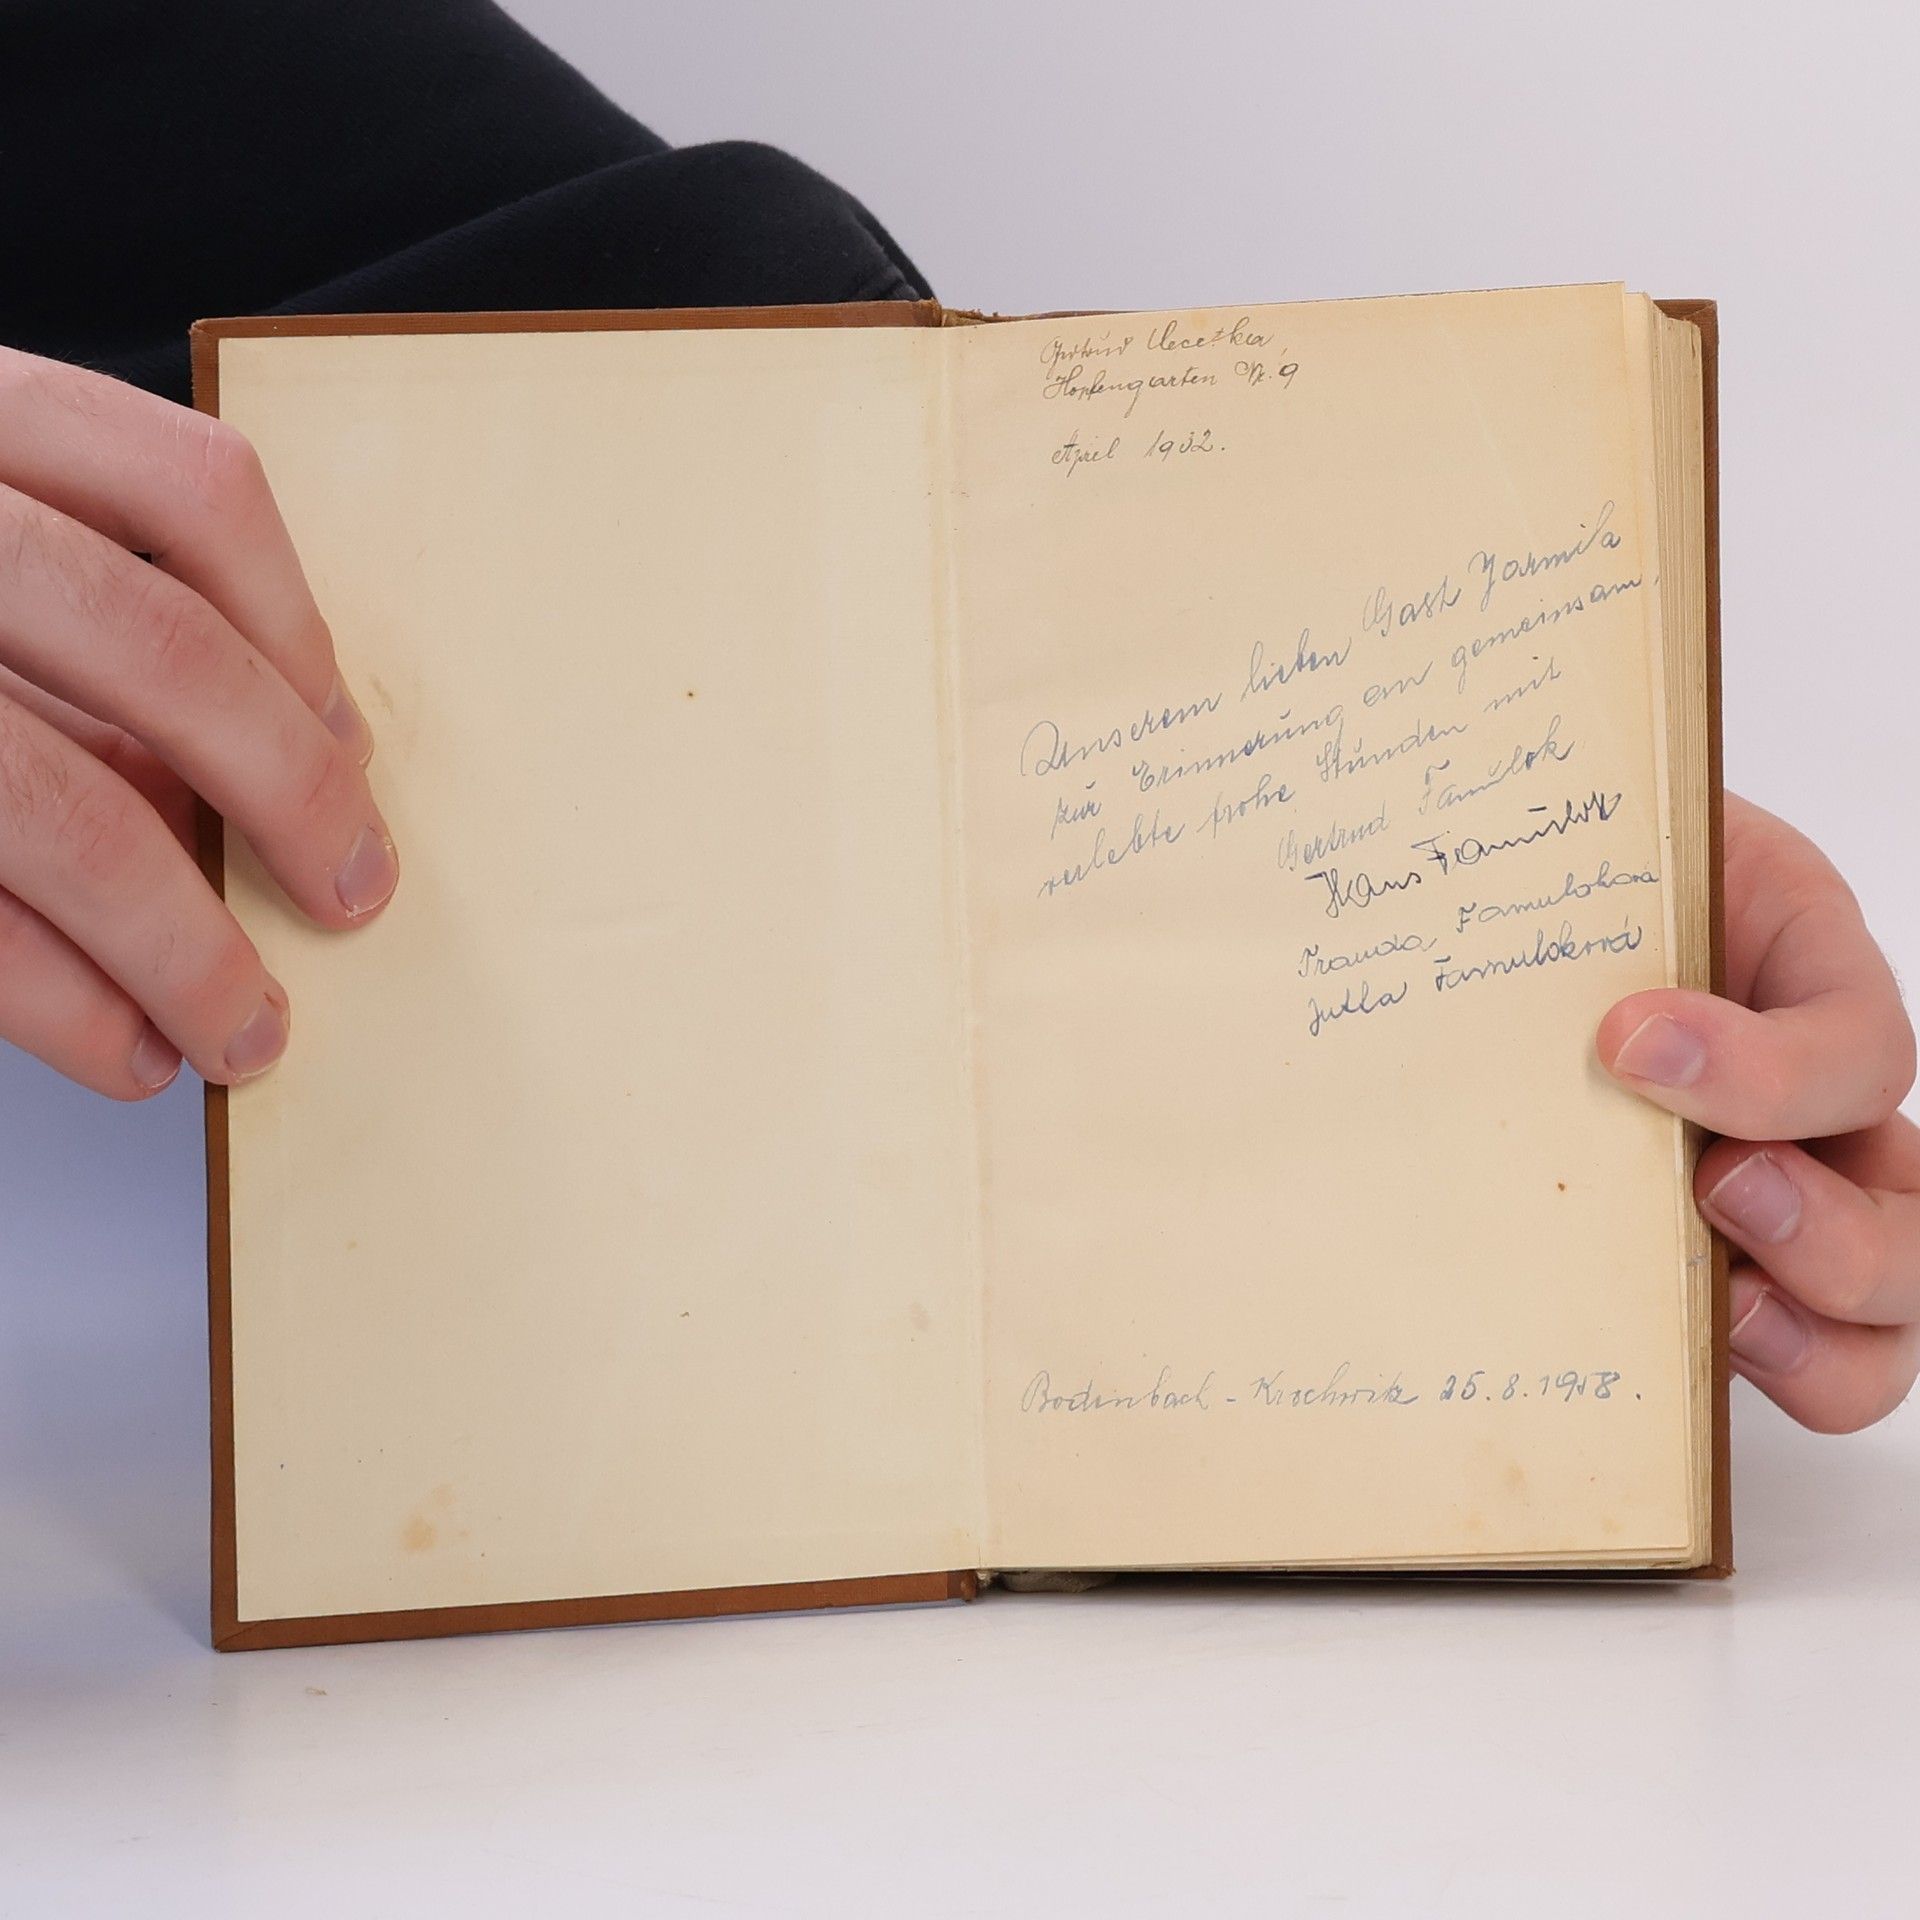 Gertrud
Hopfengarten Nr. 9
April 1932.
Unserem lieben Gast Jarmila
zur Erinnerung an gemeinsam
verlebte frohe Stunden mit
Gertrud Famulok
Hans Famulok
Trauda Famuloková
Jutta Famuloková
Bodenbach - Krochwitz 25.8.1958.